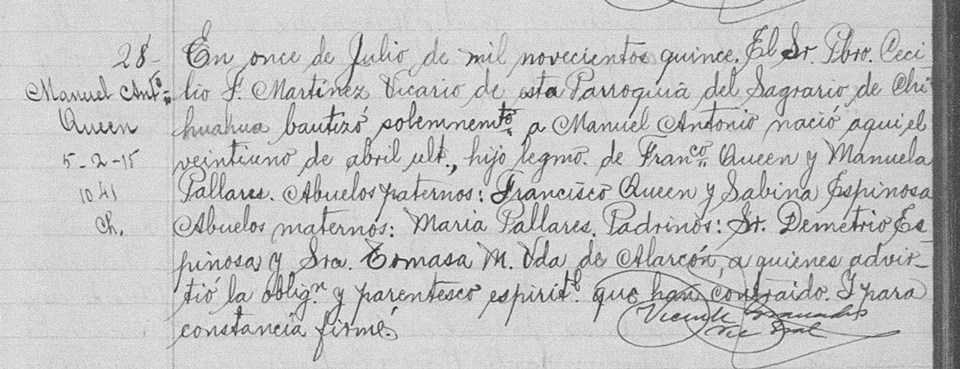 28
Manuel Ant.º
Queen
5-2-15
1041
Ch.
En once de Julio de mil novecientos quince. El Sr. Pbro. Ceci
lio F. Martinez Vicario de esta Parroquia del Sagrario de Chi
huahua bautizó solemnemte. a Manuel Antonio nació aqui el
veintiuno de abril ult., hijo legmo. de Franco. Queen y Manuela
Pallares. Abuelos paternos: Francisco Queen y Sabina Espinosa
Abuelos maternos: Maria Pallares. Padrinos: Sr. Demetrio Es-
pinosa y Sra. Tomasa M. Vda de Alarcón, a quienes advir-
tió la oblign. y parentesco espiritl. que han contraido. Y para
constancia firmé.
Vicente Granados
Vic Gral